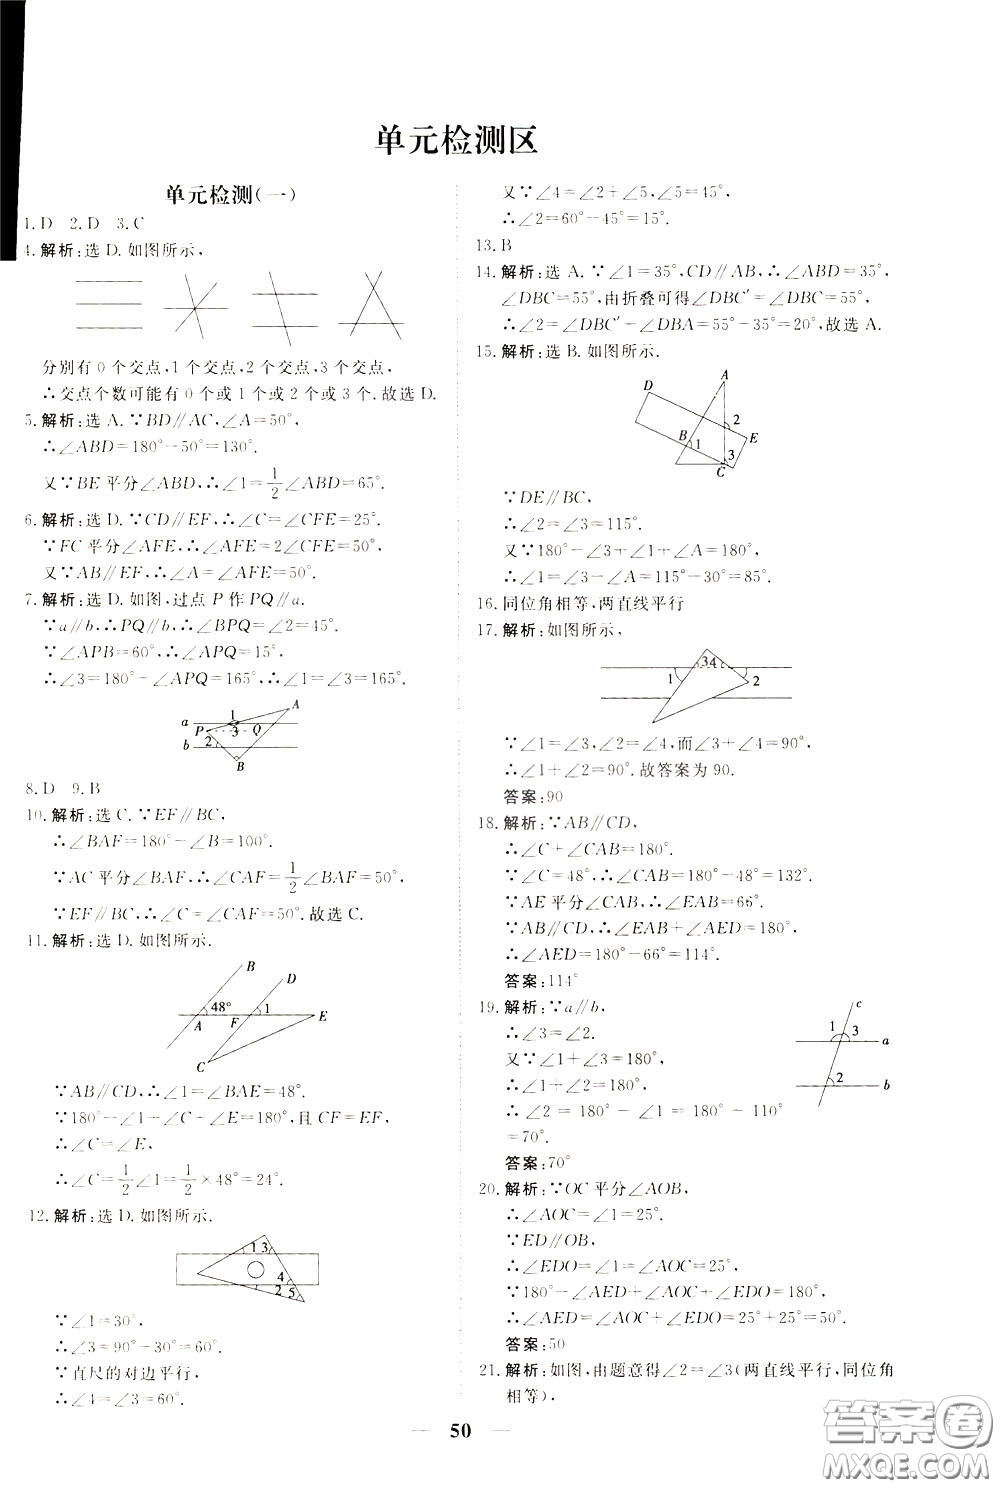 单元检测区
单元检测(一)
1.D 2.D 3.C
4.解析:选 D.如图所示,
分别有 0 个交点,1 个交点,2 个交点,3 个交点,
∴交点个数可能有 0 个或 1 个或 2 个或 3 个.故选 D.
5.解析:选 A.∵BD∥AC,∠A=50°,
∴∠ABD=180°-50°=130°.
又∵BE 平分∠ABD,∴∠1=1/2∠ABD=65°.
6.解析:选 D.∵CD∥EF,∴∠C=∠CFE=25°.
∵FC 平分∠AFE,∴∠AFE=2∠CFE=50°,
又∵AB∥EF,∴∠A=∠AFE=50°.
7.解析:选 D.如图,过点 P 作 PQ∥a.
∵a∥b,∴PQ∥b,∴∠BPQ=∠2=45°.
∵∠APB=60°,∴∠APQ=15°.
∴∠3=180°-∠APQ=165°,∴∠1=∠3=165°.
a P 1 3 Q A
b 2 B
8.D 9.B
10.解析:选 C.∵EF∥BC,
∴∠BAF=180°-∠B=100°.
∵AC 平分∠BAF,∴∠CAF=1/2∠BAF=50°,
∵EF∥BC,∴∠C=∠CAF=50°.故选 C.
11.解析:选 D.如图所示.
B D
48° 1
A F E
C
∵AB∥CD,∴∠1=∠BAE=48°.
∵180°-∠1+∠C+∠E=180°,且 CF=EF,
∴∠C=∠E,
∴∠C=1/2∠1=1/2×48°=24°.
12.解析:选 D.如图所示.
1 3
4
2 5
∵∠1=30°,
∴∠3=90°-30°=60°.
∵直尺的对边平行,
∴∠4=∠3=60°.
又∵∠4=∠2+∠5,∠5=45°,
∴∠2=60°-45°=15°.
13.B
14.解析:选 A.∵∠1=35°,CD∥AB,∴∠ABD=35°,
∠DBC=55°,由折叠可得∠DBC′=∠DBC=55°,
∴∠2=∠DBC′-∠DBA=55°-35°=20°,故选 A.
15.解析:选 B.如图所示.
D A
2
B 1 E
3
C
∵DE∥BC,
∴∠2=∠3=115°.
又∵180°-∠3+∠1+∠A=180°,
∴∠1=∠3-∠A=115°-30°=85°.
16.同位角相等,两直线平行
17.解析:如图所示,
3 4
1 2
∵∠1=∠3,∠2=∠4,而∠3+∠4=90°,
∴∠1+∠2=90°.故答案为 90.
答案:90
18.解析:∵AB∥CD,
∴∠C+∠CAB=180°.
∵∠C=48°,∴∠CAB=180°-48°=132°.
∵AE 平分∠CAB,∴∠EAB=66°.
∵AB∥CD,∴∠EAB+∠AED=180°,
∴∠AED=180°-66°=114°.
答案:114°
19.解析:∵a∥b,
∴∠3=∠2.
又∵∠1+∠3=180°,
∴∠1+∠2=180°,
∴∠2 = 180° - ∠1 = 180° - 110°
=70°.
c
1 3 a
2 b
答案:70°
20.解析:∵OC 平分∠AOB,
∴∠AOC=∠1=25°.
∵ED∥OB,
∴∠EDO=∠1=∠AOC=25°,
∵180°-∠AED+∠AOC+∠EDO=180°,
∴∠AED=∠AOC+∠EDO=25°+25°=50°.
答案:50
21.解析:如图,由题意得∠2=∠3(两直线平行,同位角
相等),
50
答案卷
MXQE.COM